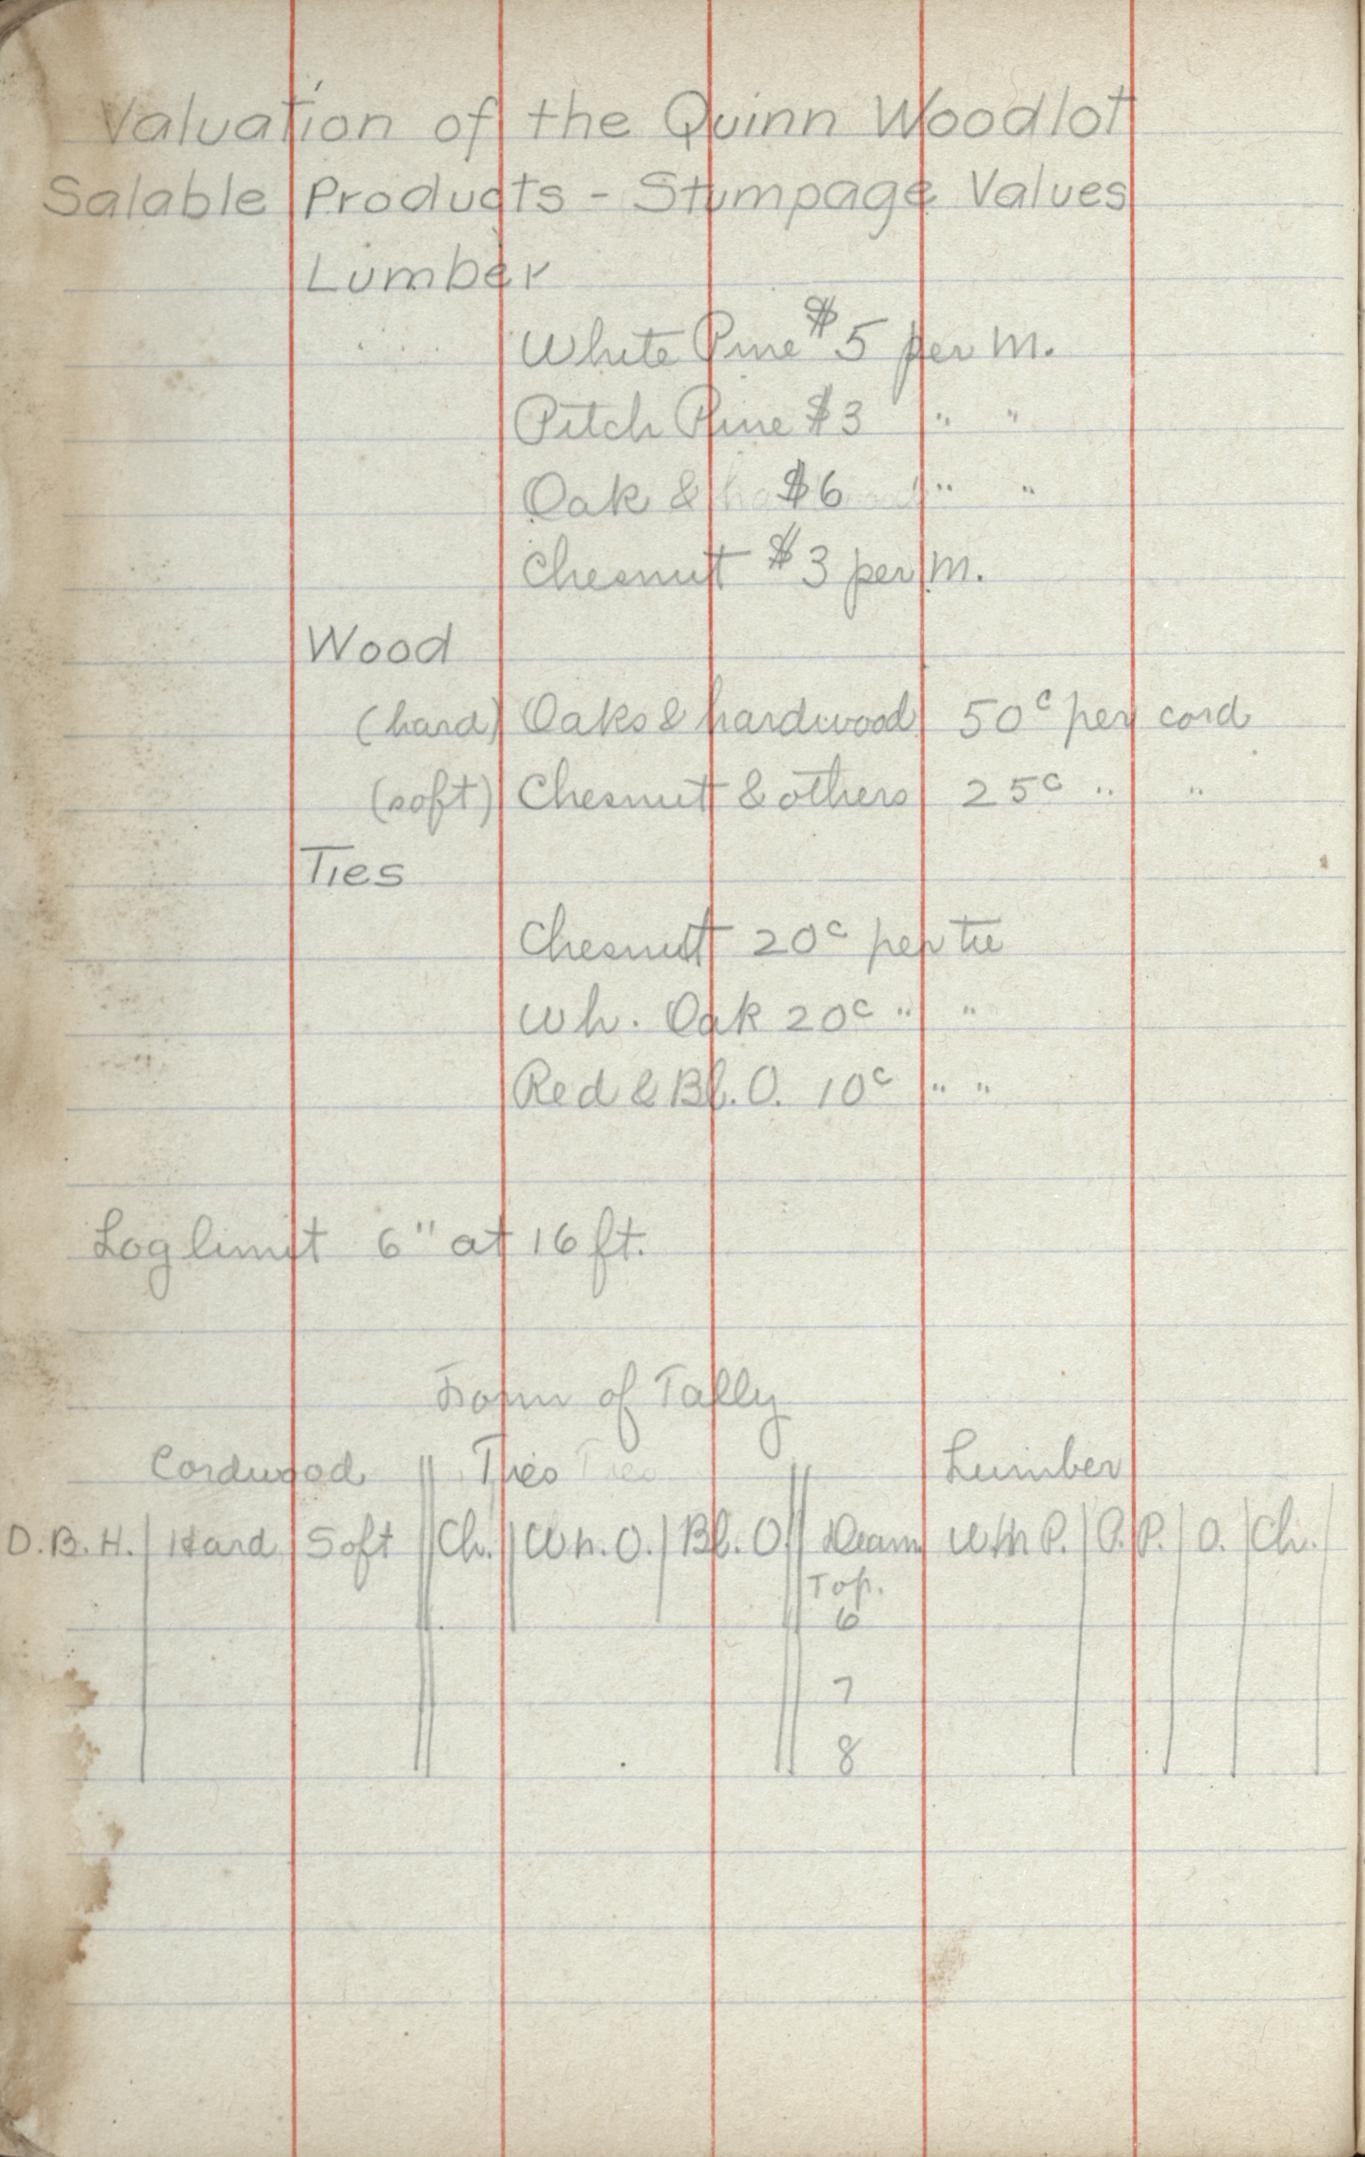 Valuation of the Quinn Woodlot
Salable Products - Stumpage Values
Lumber
White Pine $5 per M.
Pitch Pine $3 " "
Oak & $6 " "
Chesnut $3 per M.
Wood
(hard) Oaks & hardwood 50c per cord
(soft) Chesnut & others 25c " "
Ties
Chesnut 20c per tie
Wh. Oak 20c " "
Red & Bl. O. 10c " "
Log limit 6" at 16 ft.
Form of Tally
Cordwood Ties Lumber
D.B.H. Hard Soft Ch. Wh. O. Bl. O. Diam Wh P. P.P. O. Ch.
Top.
6
7
8